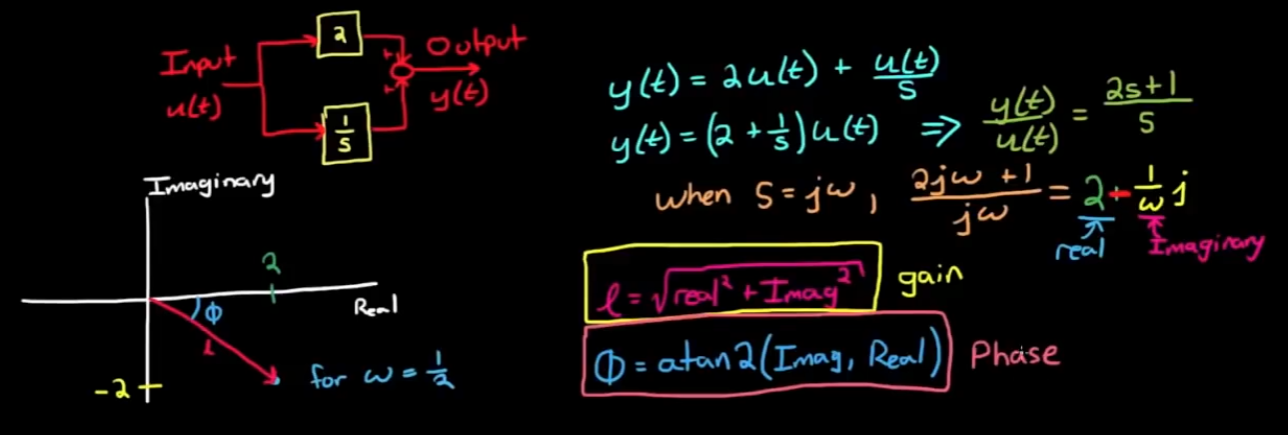 Input
u(t)
2
1/s
+
+
Output
y(t)
y(t) = 2u(t) + u(t)/s
y(t) = (2 + 1/s) u(t) ⇒ y(t)/u(t) = 2s+1/s
when s = jω, 2jω +1/jω = 2 - 1/ω j
real
Imaginary
Imaginary
2
Real
ϕ
l
-2
for ω = 1/2
l = √real² + Imag² gain
ϕ = atan2(Imag, Real) Phase